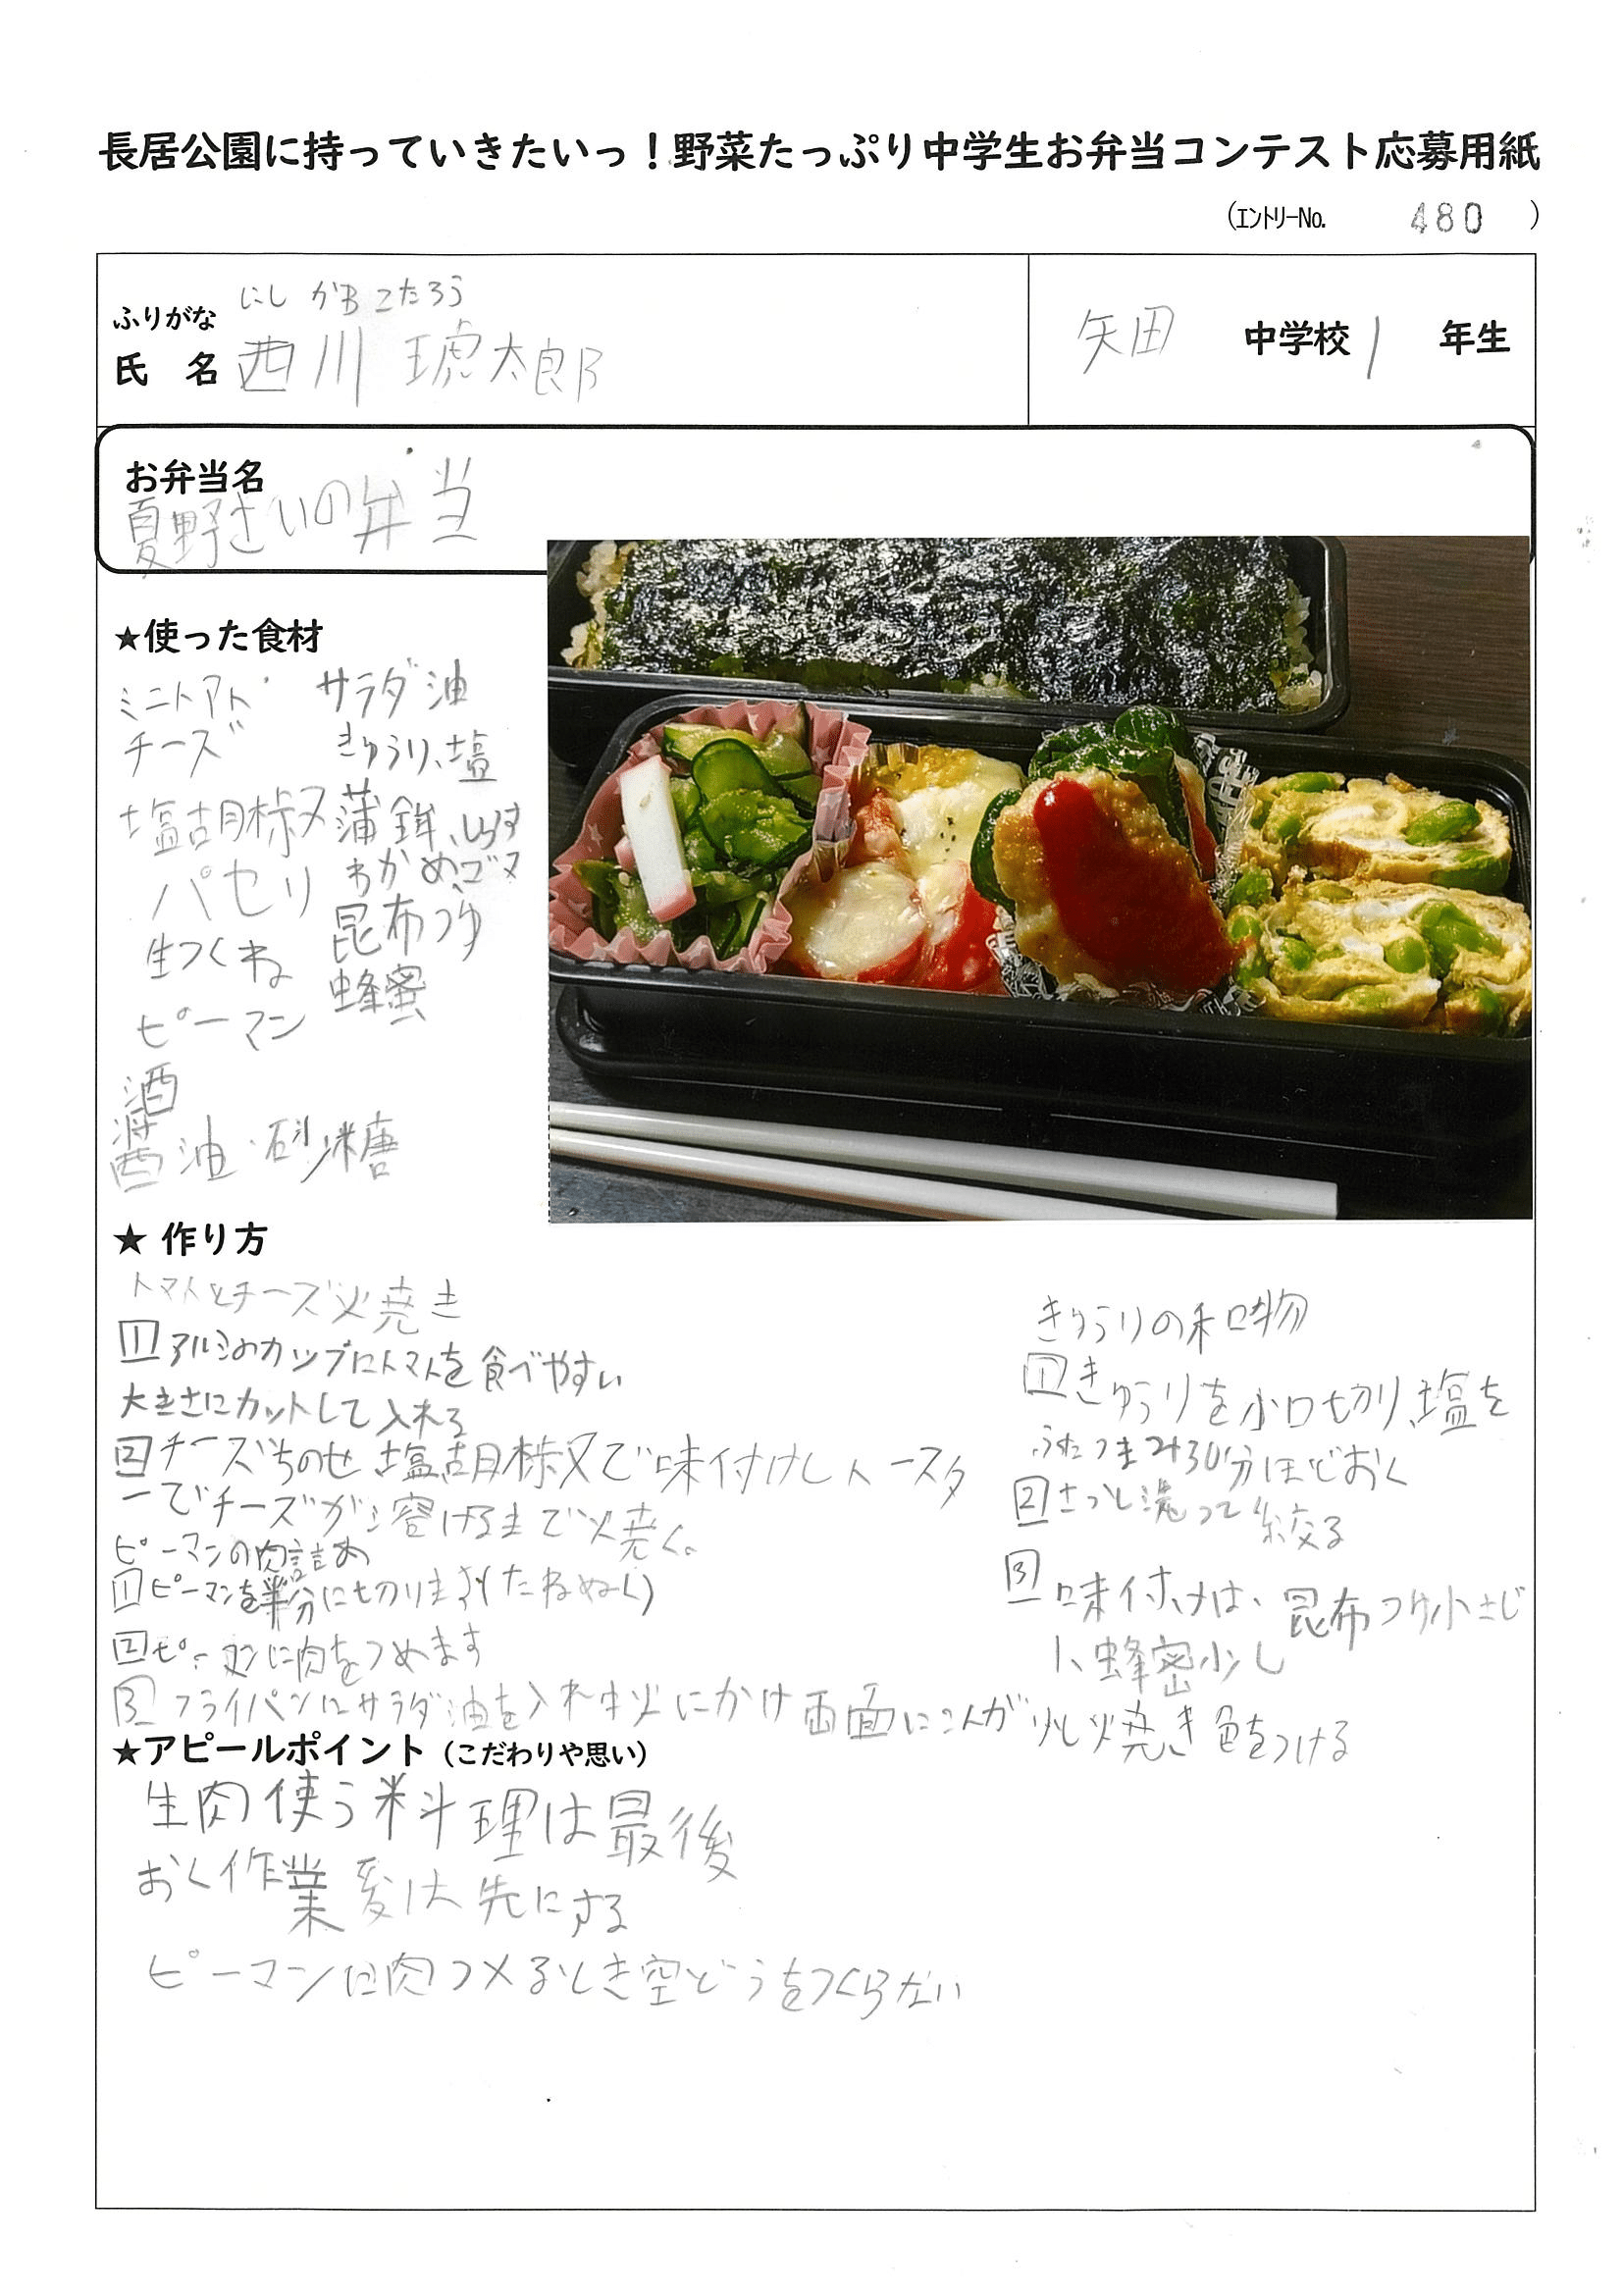 長居公園に持っていきたいっ!野菜たっぷり中学生お弁当コンテスト応募用紙
(エントリーNo. 480 )
ふりがな にしかわこたろう
氏 名 西川 琥太郎
矢田 中学校 1 年生
お弁当名
夏野さいの弁当
★使った食材
ミニトアト サラダ油
チーズ きゅうり、塩
塩胡椒 蒲鉾、しらす
パセリ わかめ、ゴマ
生つくね 昆布つゆ
ピーマン 蜂蜜
酒
醤油・砂糖
★ 作り方
トマトとチーズ火焼き
1 アルミのカップにトマトを食べやすい
大きさにカットして入れる
2 チーズちのせ塩胡椒で味付けしトースタ
ーでチーズが溶けるまで焼く。
ピーマンの肉詰め
1 ピーマンを半分に切ります(たねぬく)
2 ピーマンに肉をつめます
3 フライパンにサラダ油を入れ中火にかけ両面にこんが 焼き色をつける
きゅうりの和物
1 きゅうりを小口切り、塩を
ふたつまみ30分ほどおく
2 さっし洗って絞る
3 味付けは、昆布つゆ小さじ
1、蜂密少し
★アピールポイント(こだわりや思い)
生肉使う料理は最後
おく作業 先にする
ピーマンに肉つメるとき空どうをつくらない